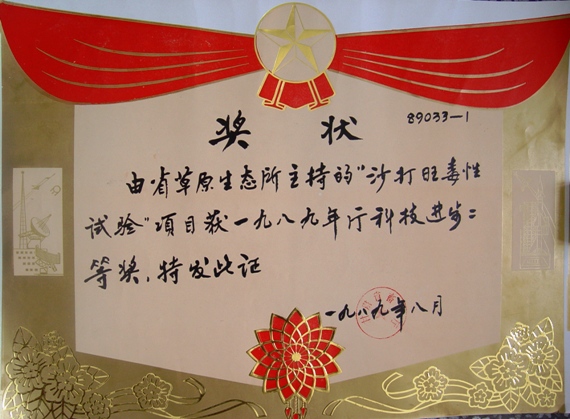 奖 状
89033—1
由省草原生态所主持的“沙打旺毒性
试验”项目获一九八九年厅科技进步二
等奖，特发此证
一九八九年八月